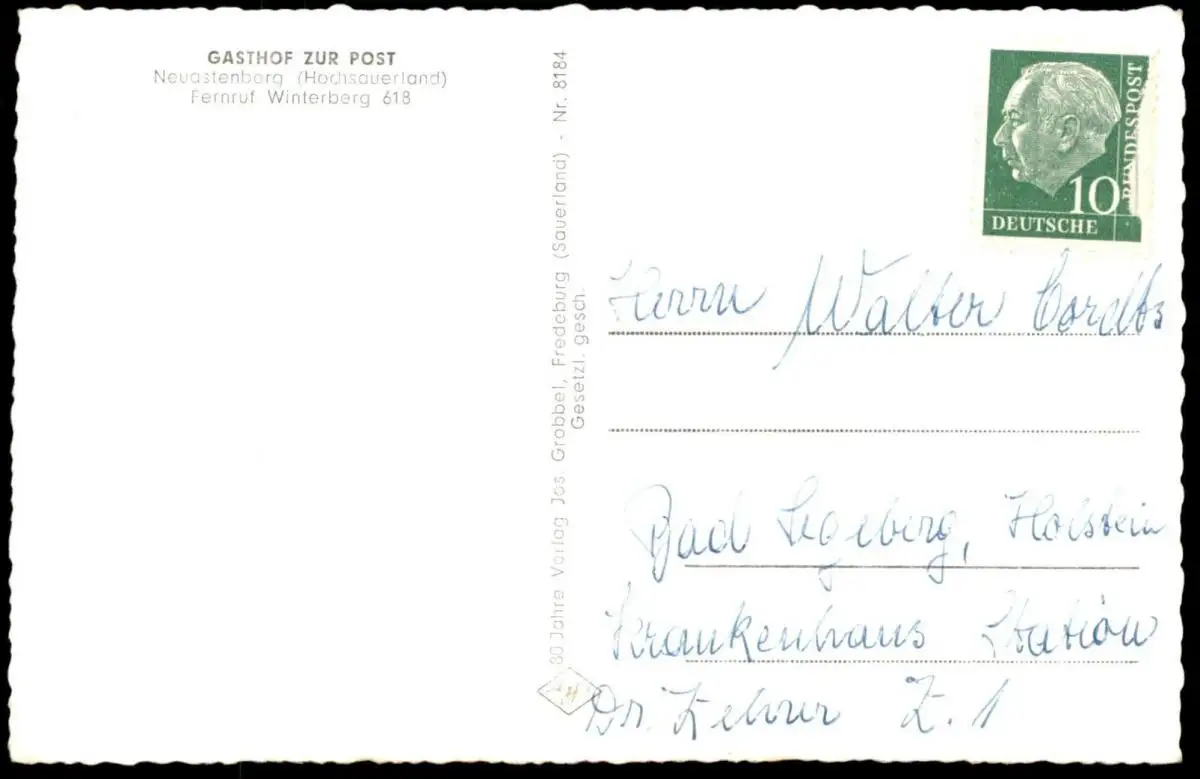 GASTHOF ZUR POST
Neuastenberg (Hochsauerland)
Fernruf Winterberg 618
80 Jahre Verlag Jos. Grobbel, Fredeburg (Sauerland) - Nr. 8184
Gesetzl. gesch.
10
BUNDESPOST
DEUTSCHE
Herrn Walter Cordts
Bad Segeberg, Holstein
Krankenhaus Station
Dr. Z. 1